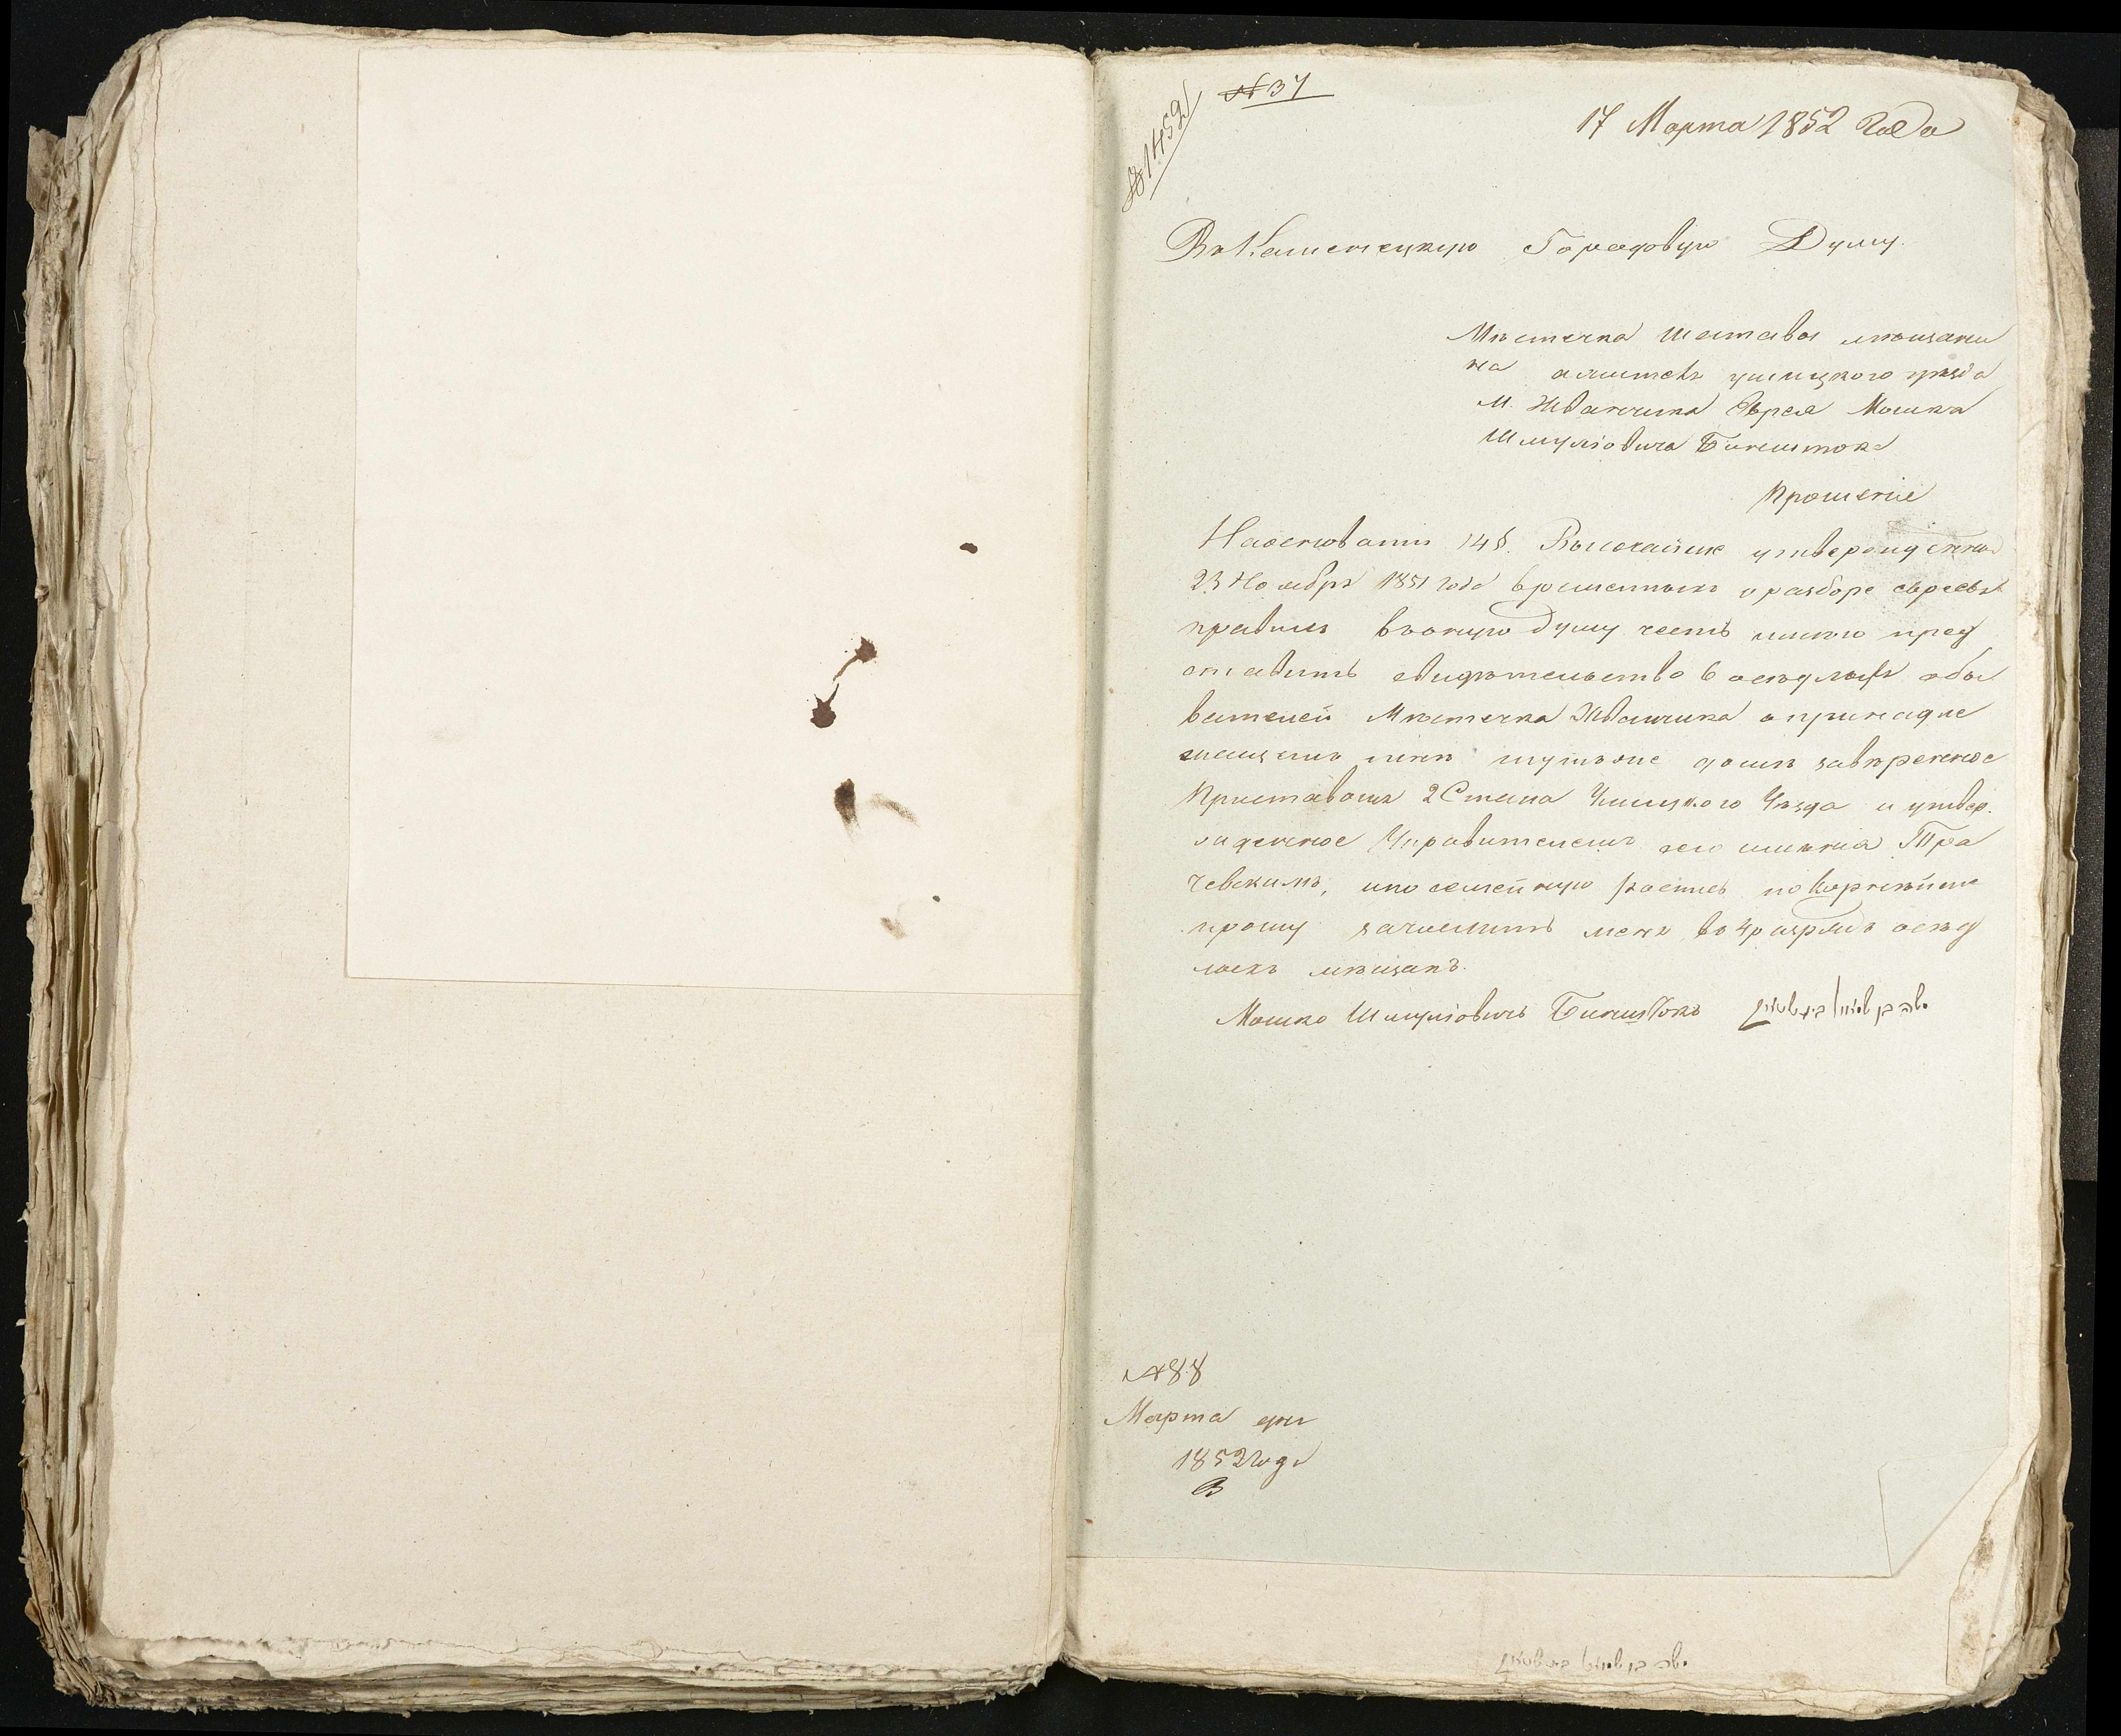 № 37
№ 1452
17 Марта 1852 года
Въ Каменецкую Городовую Думу.
Мѣстечка Шатавы мѣщани
на а жител. ушицкого уѣзда
М. Жванчика Еврея Мошка
Шмуліовича Бинштока
Прошеніе
На основаніи 14 §. Высочайше утвержденных
23 Ноября 1851 года временныхъ о разборе евреевъ
правилъ въ оную думу честь имѣю пред
ставить свидѣтельство 6 осѣдлыхъ обы
вателей Мѣстечка Жванчика о принадле
жащемъ мнѣ тутъ же домѣ завѣренное
Приставомъ 2 Стана Ушицкого Уѣзда и утвер.
жденное Управителемъ сего имѣнія Тра
чевскимъ, и посемейную роспись покорнѣйше
прошу зачислить меня въ 4 разрядъ осѣд
лыхъ мѣщанъ.
Мошко Шмуліовичъ Биншток משה בן שמואל בינשטאק
№ 88
Марта дня
1852 года
משה בן שמואל בינשטאק